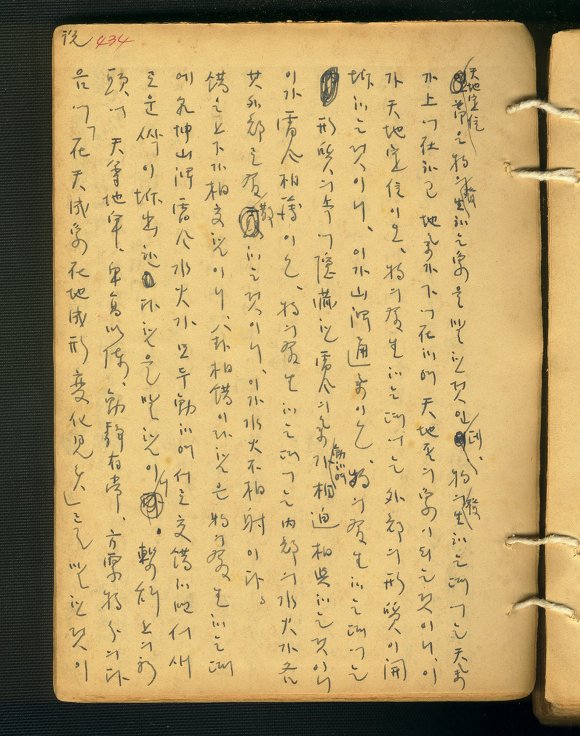 說 434
天地定位은 物의 發生하는 象을 말한 것인데、物의 發生하는 때에는 天氣
가 上에 在하고 地氣가 下에 在하여 天地否의 象이 되는 것이니、이
가 天地定位이오、物의 發生하는 때에는 外部의 形質이 開
坼하는 것이니、이가 山澤通氣이오、物의 發生하는 때에는
形質의 속에 隱藏한 雷風의 氣가 動하여 相迫相與하는 것이니
이가 雷風相薄이오、物의 發生하는 때에는 內部의 水火가 各
其外部로 發散하는 것이니、이가 水火不相射이다。
錯은 上下가 相交함이니、八卦相錯이라 함은 物의 發生하는 때
에 乾坤山澤雷風水火가 모두 動하여 서로 交錯하면서 새
로운 싹이 坼出한다 함을 말함이 繫辭上의
頭에 天尊地卑、卑高以陳、動靜有常、方聚物分의 다
음에「在天成象在地成形変化見矣」라고 말한 것이